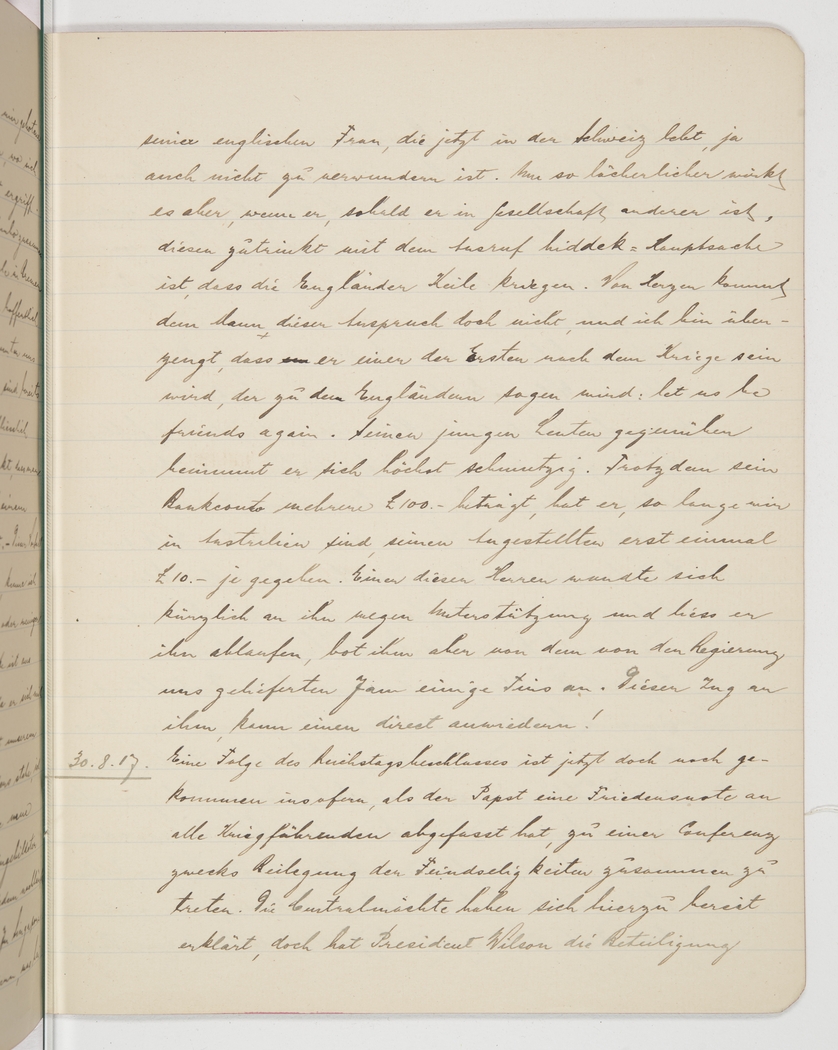 seiner englischen Frau, die jetzt in der Schweiz lebt, ja
auch nicht zu verwundern ist. Um so lächerlicher wirkt
es aber, wenn er, sobald er in Gesellschaft anderer ist,
diesen zutrinkt mit dem Ausruf hiddek = Hauptsache
ist, dass die Engländer Keile kriegen. Von Herzen kommt
dem Mann dieser Ausspruch doch nicht, und ich bin über-
zeugt, dass er einer der Ersten nach dem Kriege sein
wird, der zu den Engländern sagen wird: let us be
friends again. Seinen jungen Leuten gegenüber
benimmt er sich höchst schmutzig. Trotzdem sein
Bankconto mehrere £100.- beträgt, hat er, so lange wir
in Australien sind, seinen Angestellten erst einmal
£10.- je gegeben. Einer dieser Herren wandte sich
kürzlich an ihn wegen Unterstützung und liess er
ihn ablaufen, bot ihm aber von dem von der Regierung
uns gelieferten Jam einige Tins an. Dieser Zug an
ihm, kann einen direct anwiedern!
30.8.17. Eine Folge des Reichstagsbeschlusses ist jetzt doch noch ge-
kommen insofern, als der Papst eine Friedensnote an
alle Kriegführenden abgefasst hat, zu einer Conferenz
zwecks Beilegung der Feindseligkeiten zusammen zu
treten. Die Centralmächte haben sich hierzu bereit
erklärt, doch hat President Wilson die Beteiligung